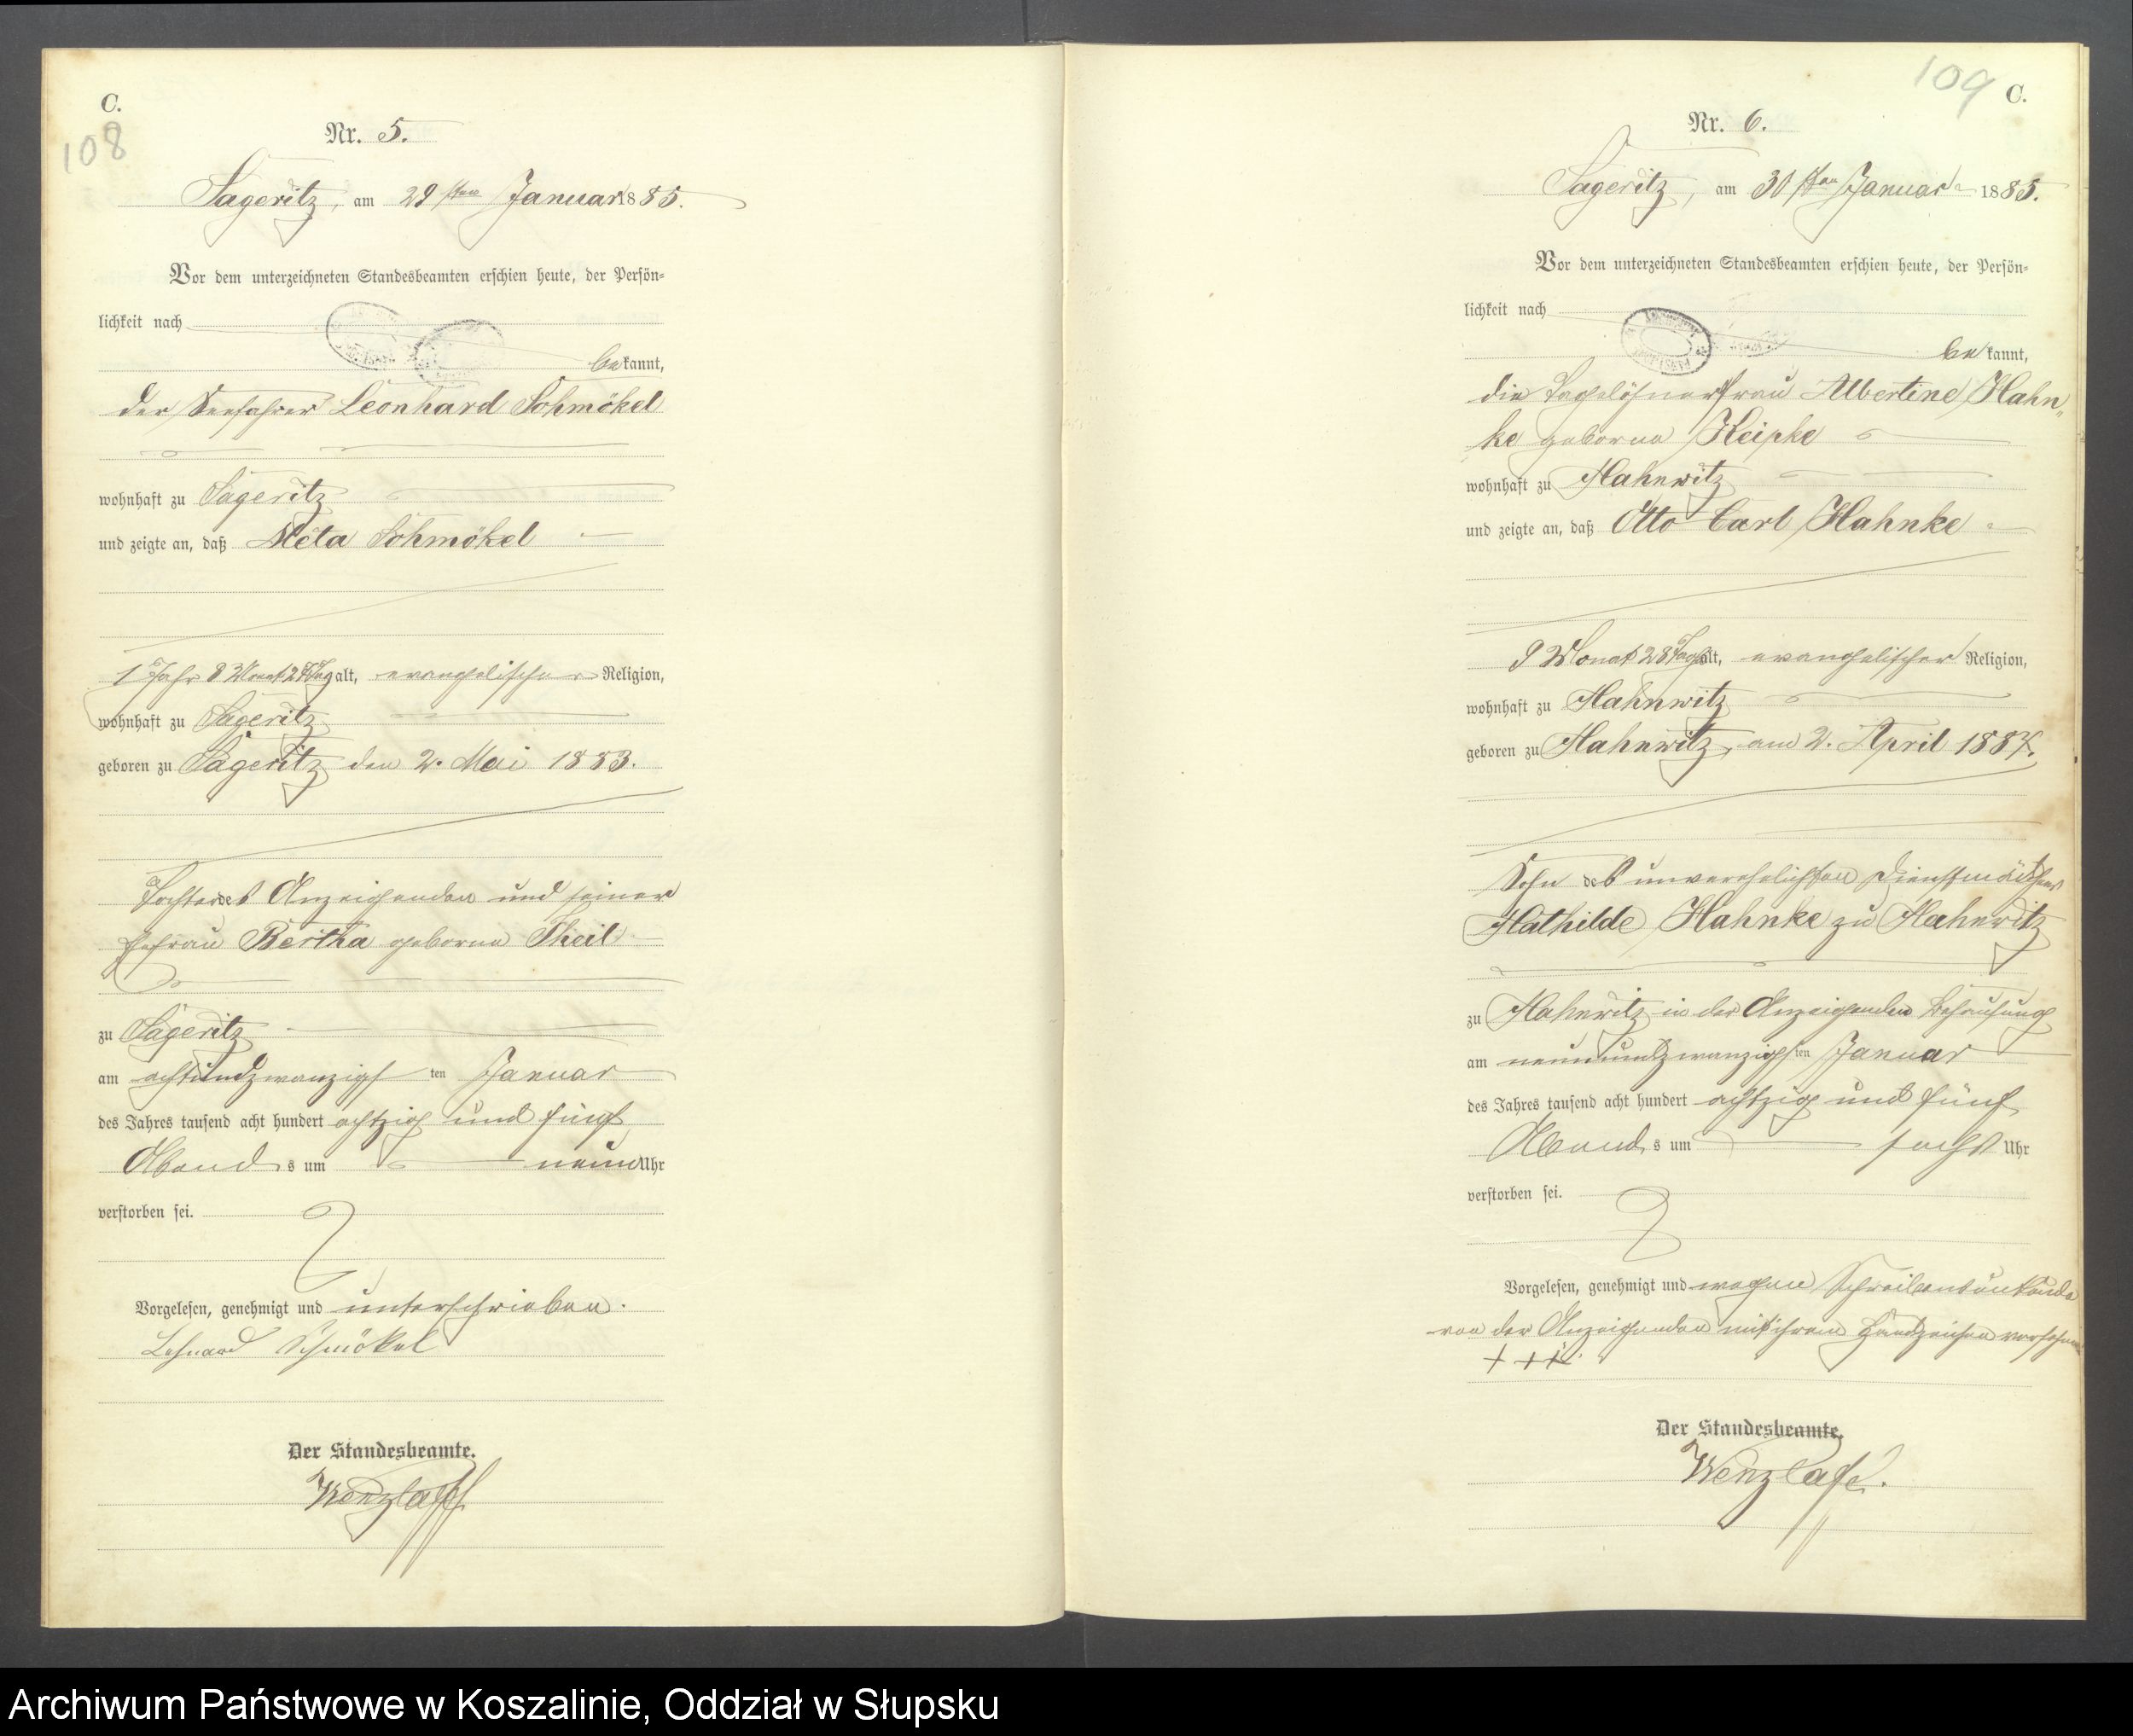 C.
108
Nr. 5.
Sageritz, am 29ten Januar 1885.
Vor dem unterzeichneten Standesbeamten erschien heute, der Persön-
lichkeit nach
bekannt,
der Seefahrer Leonhard Schmökel
wohnhaft zu Sageritz
und zeigte an, daß Meta Schmökel
1 Jahr 8 Monat 26 Tag alt, evangelischer Religion,
wohnhaft zu Sageritz
geboren zu Sageritz den 2. Mai 1883.
Tochter des Anzeigenden und seiner
Ehefrau Bertha geborne Theil
zu Sageritz
am achtundzwanzigsten Januar
des Jahres tausend acht hundert achtzig und fünf
Abends um neun Uhr
verstorben sei.
Vorgelesen, genehmigt und unterschrieben.
Lehnard Schmökel
Der Standesbeamte.
Wenzlaff
109
C.
Nr. 6.
Sageritz, am 30ten Januar 1885.
Vor dem unterzeichneten Standesbeamten erschien heute, der Persön-
lichkeit nach
bekannt,
die Tagelöhnerfrau Albertine Hahn-
ke geborne Keipke
wohnhaft zu Hahnwitz
und zeigte an, daß Otto Carl Hahnke
9 Monat 28 Tage alt, evangelischer Religion,
wohnhaft zu Hahnwitz
geboren zu Hahnwitz, am 2. April 1884.
Sohn des unverehelichten Dienstmädchens
Mathilde Hahnke zu Hahnwitz
zu Hahnwitz in der Anzeigenden Behausung
am neunundzwanzigsten Januar
des Jahres tausend acht hundert achtzig und fünf
Abends um sechs Uhr
verstorben sei.
Vorgelesen, genehmigt und wegen Schreibensunkunde
von der Anzeigenden mit ihrem Handzeichen versehen
+++.
Der Standesbeamte.
Wenzlaff.
Archiwum Państwowe w Koszalinie, Oddział w Słupsku